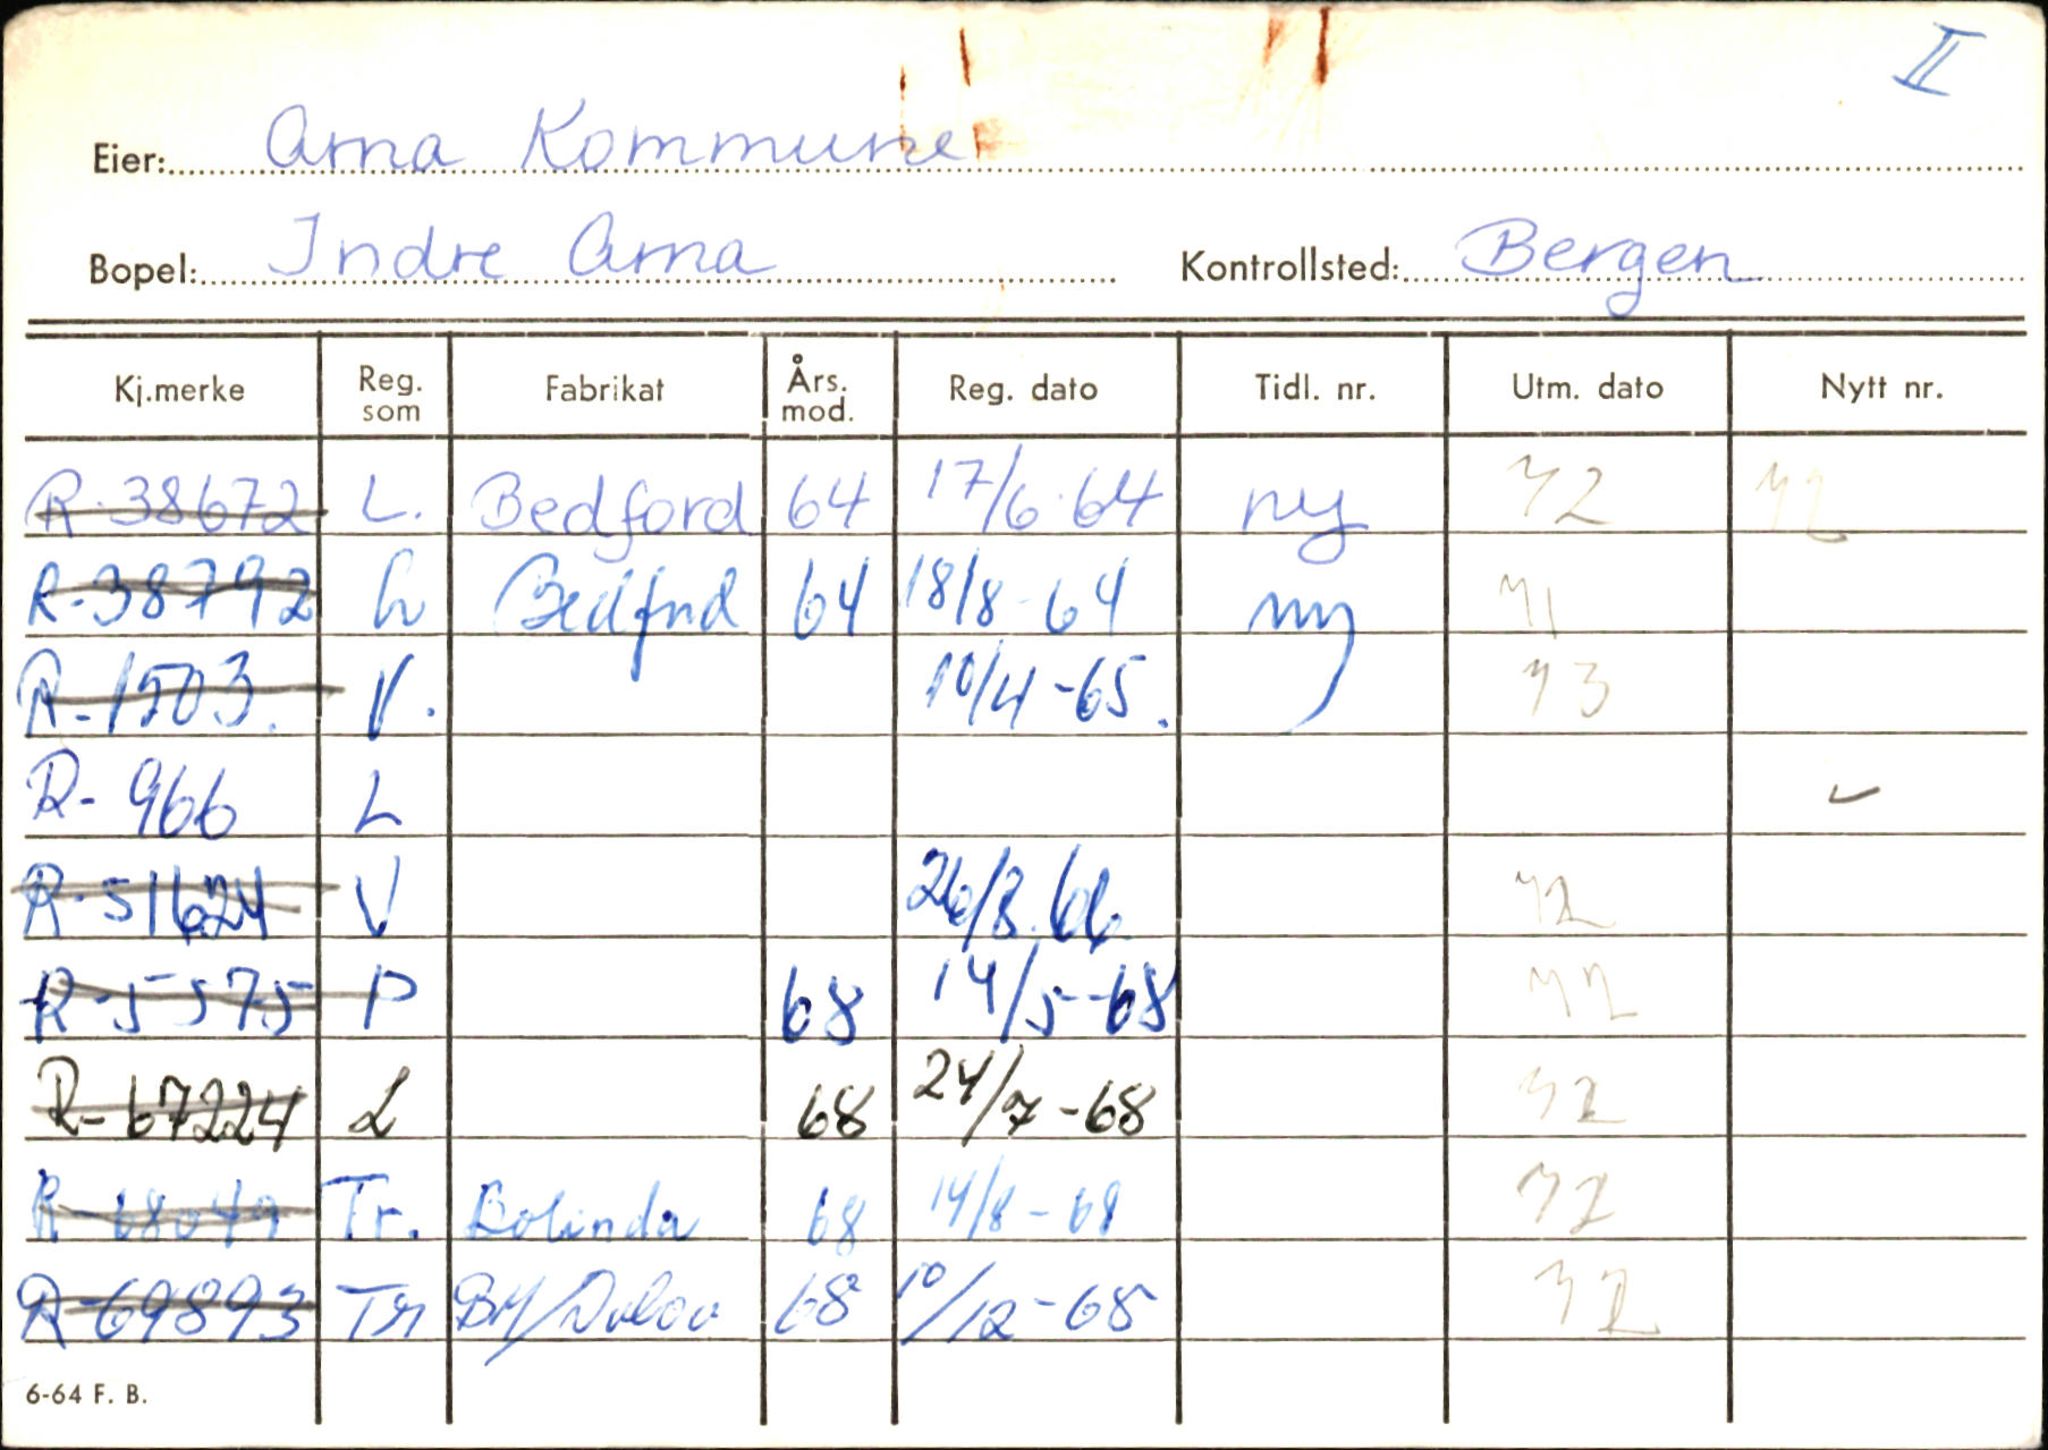 II
Eier: Arna Kommune
Bopel: Indre Arna Kontrollsted: Bergen
Kj.merke Reg. som Fabrikat Års. mod. Reg. dato Tidl. nr. Utm. dato Nytt nr.
R-38672 L. Bedford 64 17/6-64 ny 72 72
R-38792 L Bedford 64 18/8-64 ny 71
R-1503. V. 10/4-65. 73
R-966 L ✓
R-51624 V 26/8.66 72
R-5575 P 68 14/5-68 72
R-67224 L 68 24/7-68 72
R-68049 Tr. Bolinda 68 14/8-68 72
R-69893 Tr BM/Volvo 68 10/12-68 72
6-64 F. B.